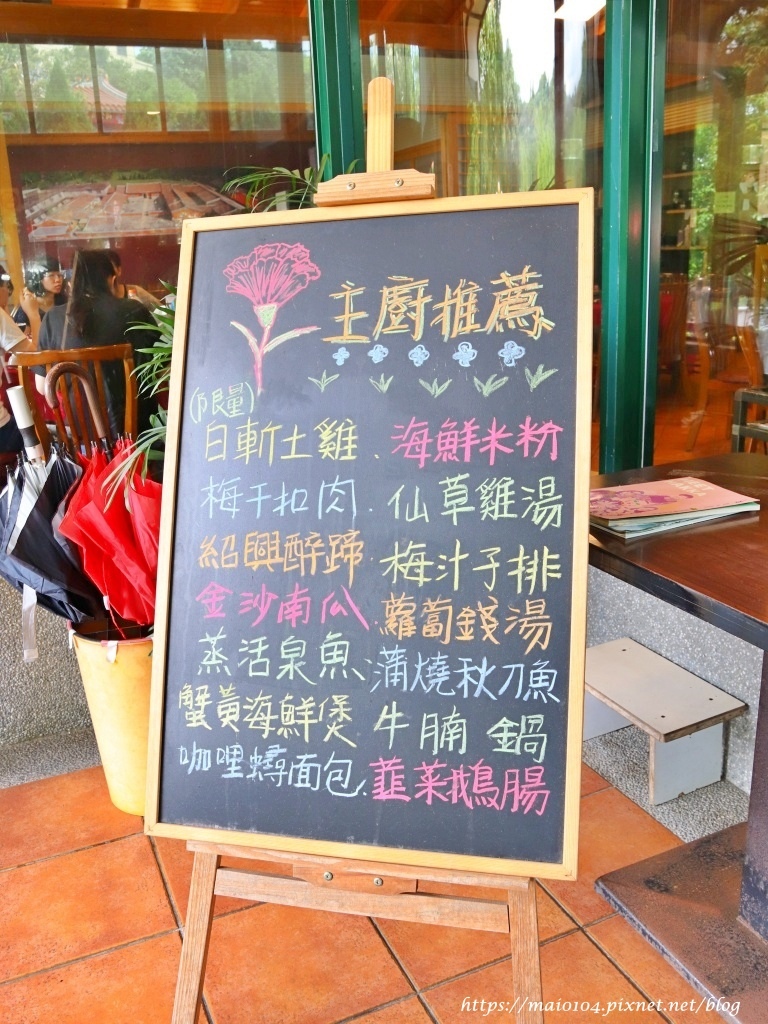 主廚推薦
(限量)
白斬土雞．海鮮米粉
梅干扣肉．仙草雞湯
紹興醉蹄．梅汁子排
金沙南瓜．蘿蔔錢湯
蒸活泉魚．蒲燒秋刀魚
蟹黃海鮮煲 牛腩鍋
咖哩蟳面包．韮菜鵝腸
https://maio104.pixnet.net/blog